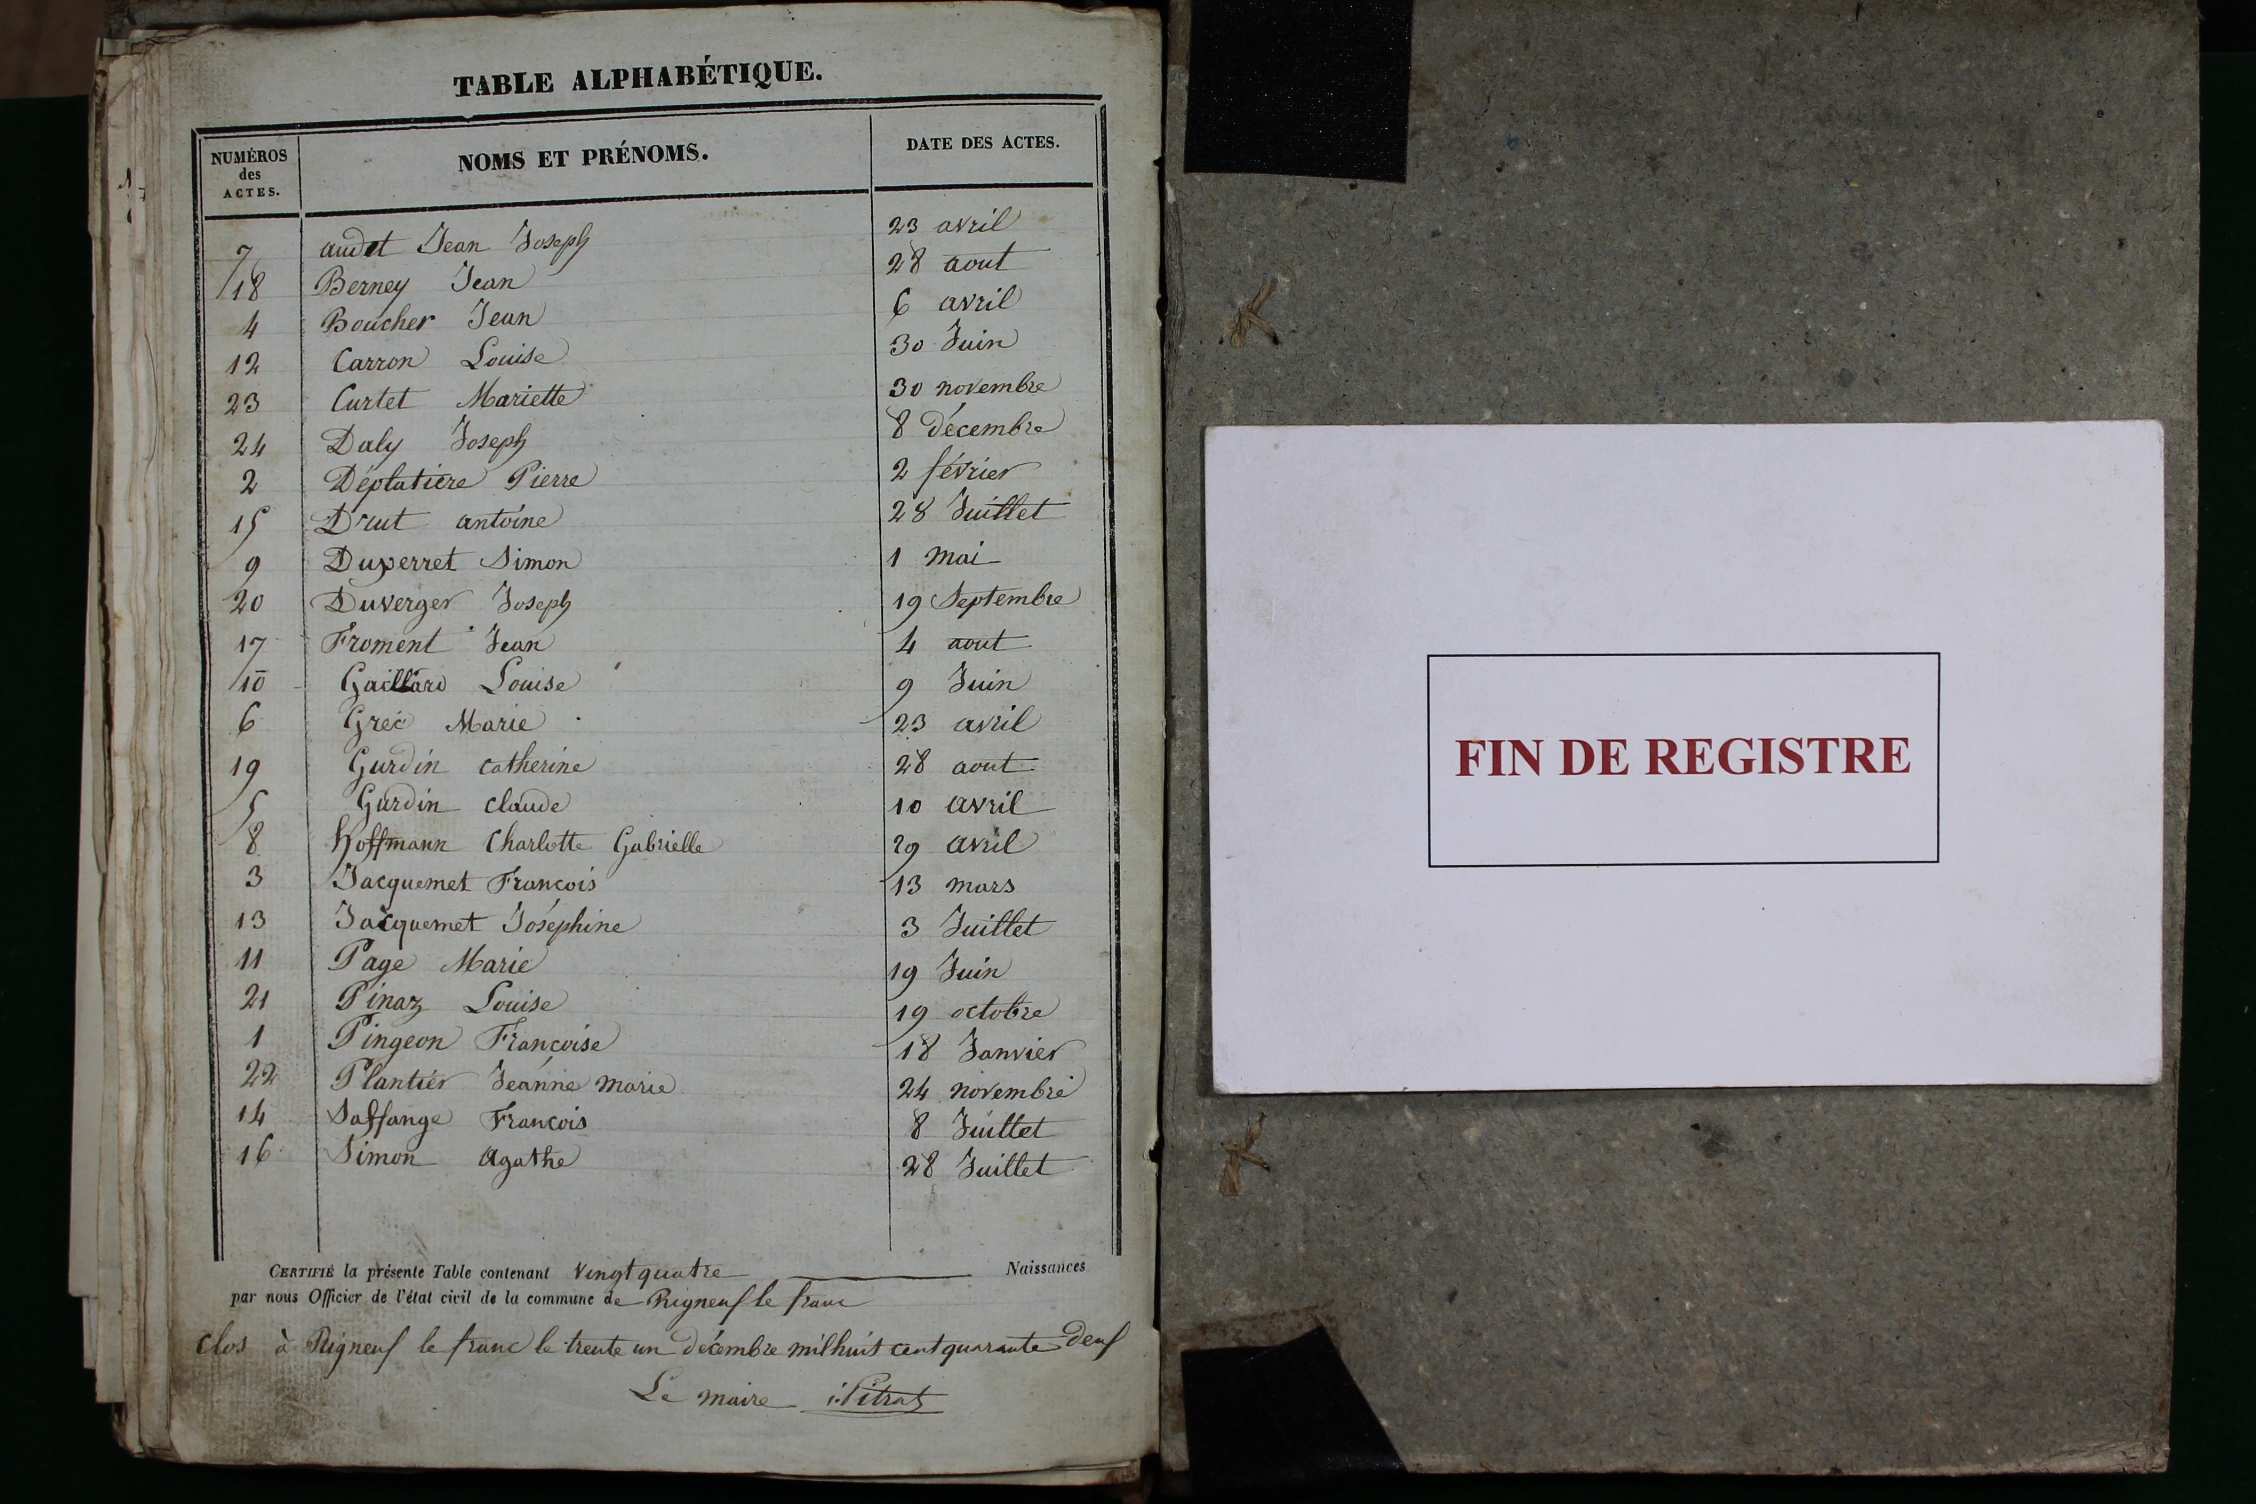 TABLE ALPHABÉTIQUE.
NUMÉROS des ACTES. NOMS ET PRÉNOMS. DATE DES ACTES.
7 audet Jean Joseph 23 avril
18 Berney Jean 28 aout
4 Boucher Jean 6 avril
12 Carron Louise 30 Juin
23 Curtet Mariette 30 novembre
24 Daly Joseph 8 décembre
2 Déplatiére Pierre 2 février
15 Drut antoine 28 Juillet
9 Duperret Simon 1 mai
20 Duverger Joseph 19 Septembre
17 Froment Jean 4 aout
10 Gaillard Louise 9 Juin
6 Grec Marie 23 avril
19 Gurdin catherine 28 aout
5 Gurdin claude 10 avril
8 hoffmann Charlotte Gabrielle 29 avril
3 Jacquemet Francois 13 mars
13 Jacquemet Joséphine 3 Juillet
11 Page Marie 19 Juin
21 Pinaz Louise 19 octobre
1 Pingeon Francoise 18 Janvier
22 Plantier Jeanne marie 24 novembre
14 Saffange Francois 8 Juillet
16 Simon agathe 28 Juillet
CERTIFIÉ la présente Table contenant vingt quatre Naissances
par nous Officier de l'état civil de la commune de Rigneuf le franc
clos à Rigneuf le franc le trente un décembre mil huit cent quarante deuf
Le maire Pitrat
FIN DE REGISTRE